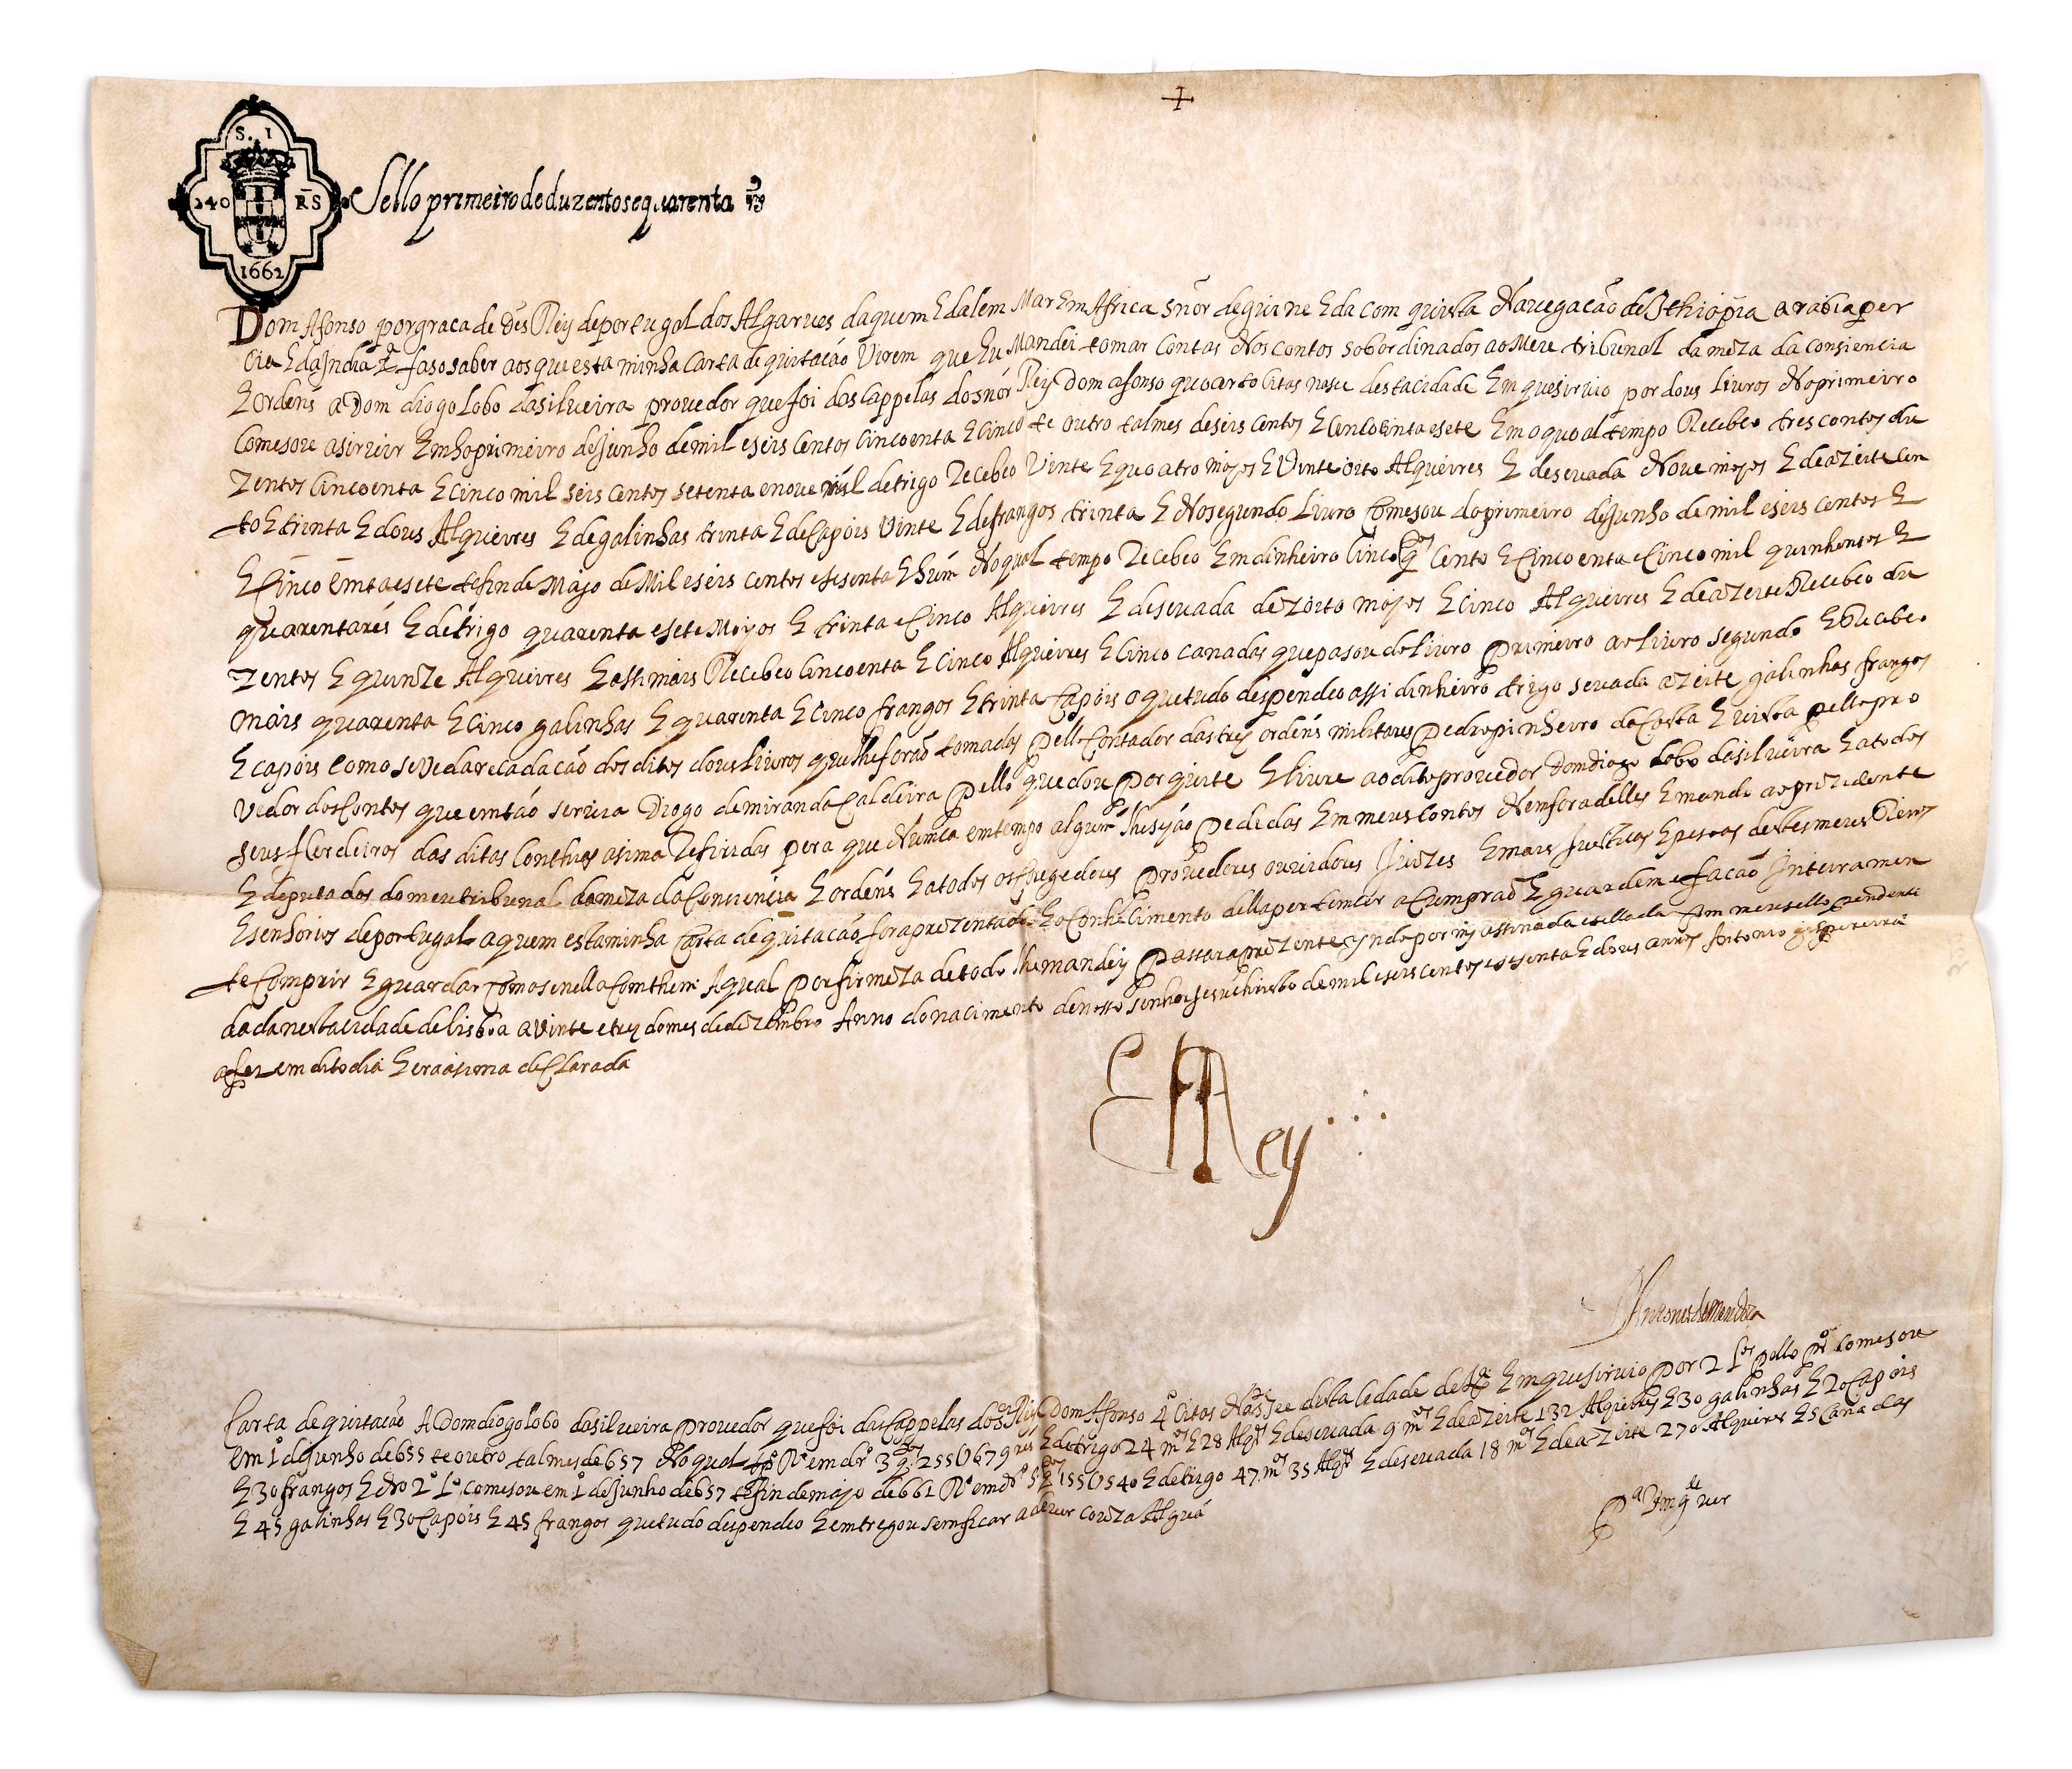 S. I
240 RS
1662
Sello primeiro de duzentos e quarenta rs
Dom Afonso por graca de Ds Rey de portugal dos Algarues daquem E dalem Mar Em Africa Snor de guine E da com quista Nauegacão de Ethiopia arabia per
cia E da India &a faso saber aos que esta minha Carta de quitacão Virem que Eu Mandei tomar Contas Nos contos sobordinados ao Meu tribunal da meza da consiencia
E ordens a Dom diogo Lobo da silueira prouedor que foi das Cappelas do snor Rey Dom afonso quoarto Citas na se desta cidade Em que siruio por dous Liuros No primeiro
Comesou a siruir Em ho primeiro de Junho de mil e seis Centos Cincoenta E Cinco te outro tal mes de seis centos E e sete Em o quoal tempo Recebeo tres contos du
zentos Cincoenta E Cinco mil seis Centos setenta e noue de trigo Recebeo Vinte E quoatro mojos E Vinte oito Alqueires E de seuada Noue mojos E de azeite Cen
to E trinta E dous Alqueires E de galinhas trinta E de Capois Vinte E de frangos trinta E No segundo Liuro Comesou do primeiro de Junho de mil e seis centos E
E Cinco emta e sete te fin de Majo de Mil e seis centos e sesenta E hum No qual tempo Recebeo Em dinheiro Cinco Cento E Cincoenta e Cinco mil quinhentos E
quarenta rés E de trigo quarenta e sete Moyos E trinta e Cinco Alqueires E de seuada dezoito mojos E cinco Alqueires E de azeite Recebeo du
zentos E quinze Alqueires E assi mais Recebeo Cincoenta E Cinco Alqueires E Cinco canadas que pasou de Liuro primeiro ao Liuro segundo E Recebeo
mais quarenta E Cinco galinhas E quarenta E Cinco frangos E trinta Capois o que tudo despendeo assi dinheiro trigo seuada azeite galinhas frangos
E capois Como se Ve da recadacão dos ditos dous Liuros que lhe forão tomadas pello Contador das tres ordens militares Pedro pinheiro da Costa E uista pello pro
uedor dos Contos que emtão seruia Diogo de miranda Caldeira pello que dou por quite E liure ao dito prouedor Dom diogo Lobo da silueira E a todos
seus Herdeiros das ditas Conthias asima Referidas pera que Nunca em tempo algum lhe sejão pedidas Em meus Contos Nem fora delles E mando ao prezidente
E deputados do meu tribunal da meza da Consiencia E ordens E a todos os Corregedores prouedores ouuidores Juizes E mais Justicas E pesoas destes meus Reinos
E senhorios de portugal a quem esta minha Carta de quitacão for aprezentada E o Conhecimento della pertemcer a Cumprão E guardem e facão Inteiramen
te Comprir E guardar Como se nella Comthem A qual por firmeza de todo lhe mandey passar a prezente por mj assinada e sellada Com meu sello pendente
dada nesta cidade de lisboa a Vinte e trez do mes de dezembro Anno do nacimento de nosso senhor Jesu christo de mil e seis centos e sesenta E dous annos Antonio pereira
a fez em dito dia E era asima declarada
El Rey
Carta de quitacão A Dom diogo lobo da silueira prouedor que foi das Cappelas do sor Rey Dom Afonso 4º Citas Na See desta cidade de Lxa Em que siruio por 2 Los pello pro comesou
em 1º de Junho de 655 te outro tal mes de 657 No qual tpo Ro em dro 3 255U679 res E de trigo 24 mos E 28 Alqes E de seuada 9 mos E de azeite 132 Alqueires E 30 galinhas E 20 Capois
E 30 frangos E No 2º Lo comesou em 1º de Junho de 657 te fin de majo de 661 Ro em dro 5 155U540 E de trigo 47 mos 35 Alqes E de seuada 18 mos E de azeite 270 Alqueires E 5 Canadas
E 45 galinhas E 30 Capois E 45 frangos que tudo despendeo E emtregou sem ficar a deuer couza Algua